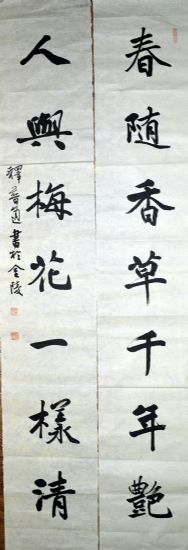 春随香草千年艷
人與梅花一樣清
釋普通書於金陵